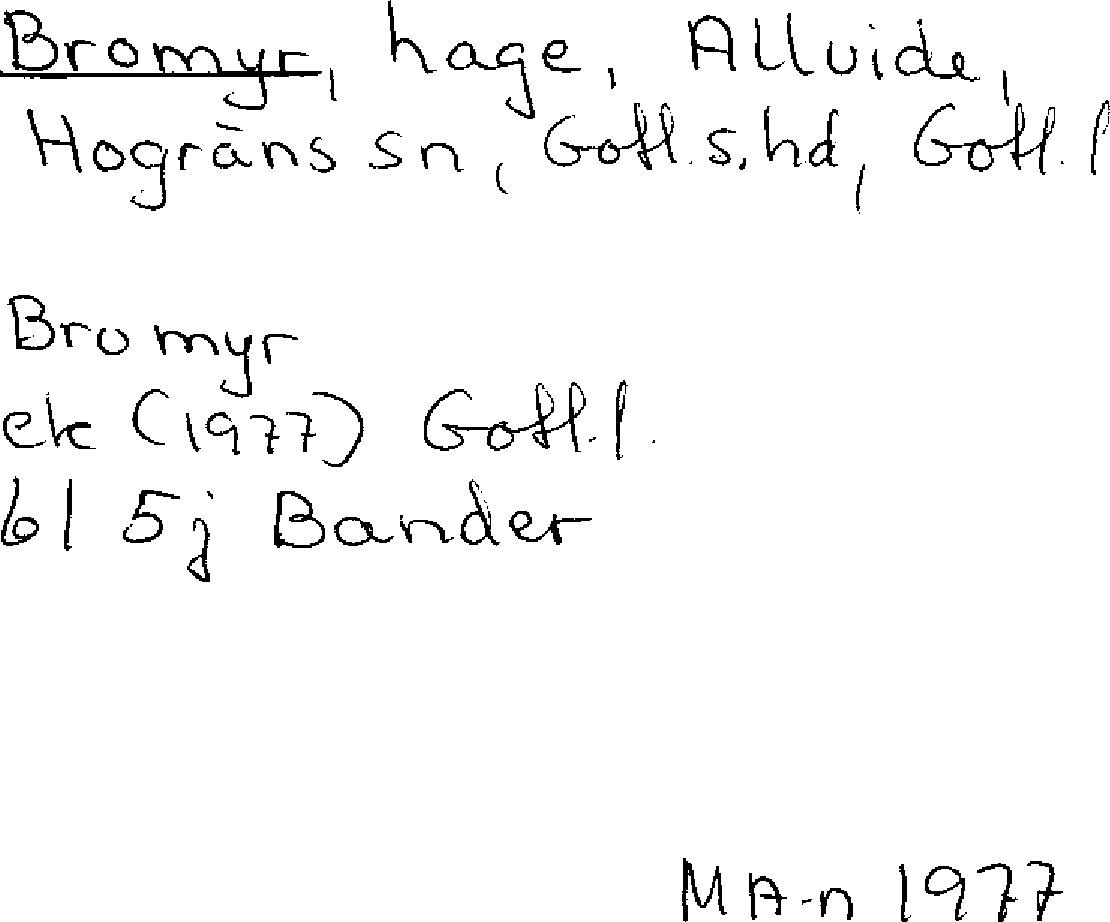 Bromyr, hage, Allvide,
Hogräns sn, Gotl. s. hd, Gotl. l
Bromyr
ek (1977) Gotl. l.
bl 5j Bander
MA-n 1977